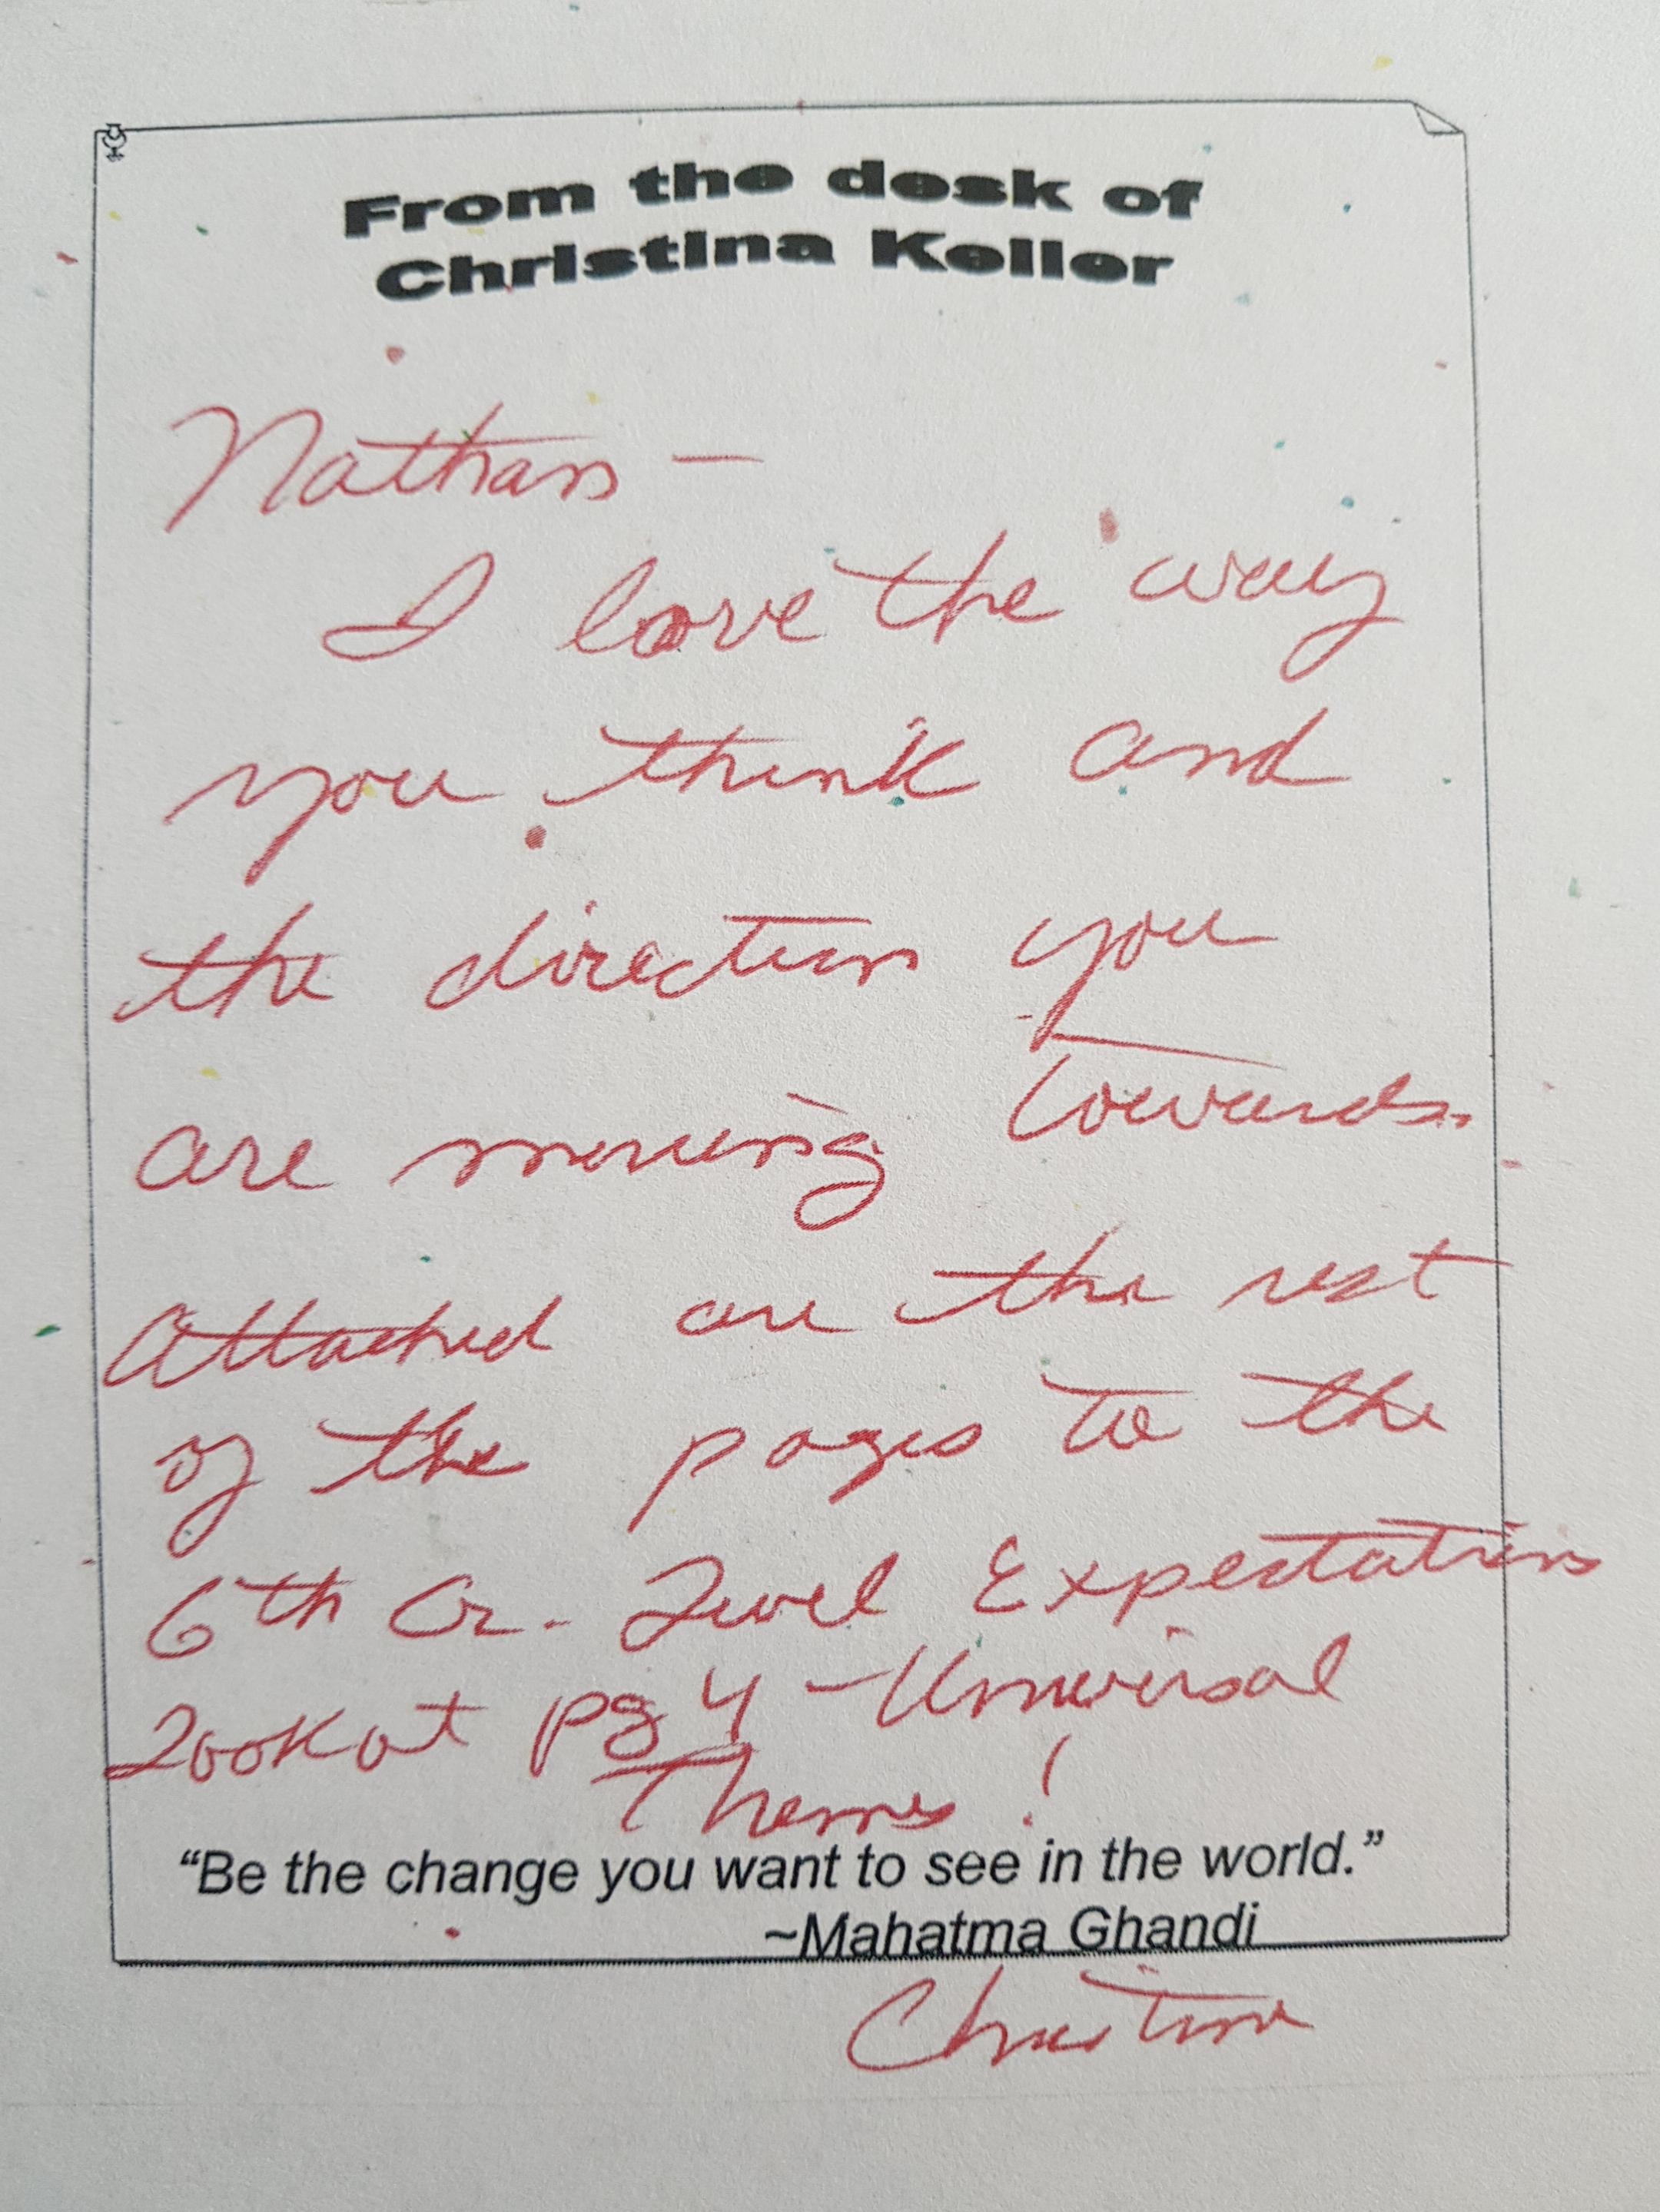 From the desk of
Christina Keller
Nathan —
I love the way
you think and
the direction you
are moving towards.
Attached are the rest
of the pages to the
6th Gr. Level Expectations
Look at pg 4 - Universal
Themes!
"Be the change you want to see in the world."
~Mahatma Ghandi
Christina